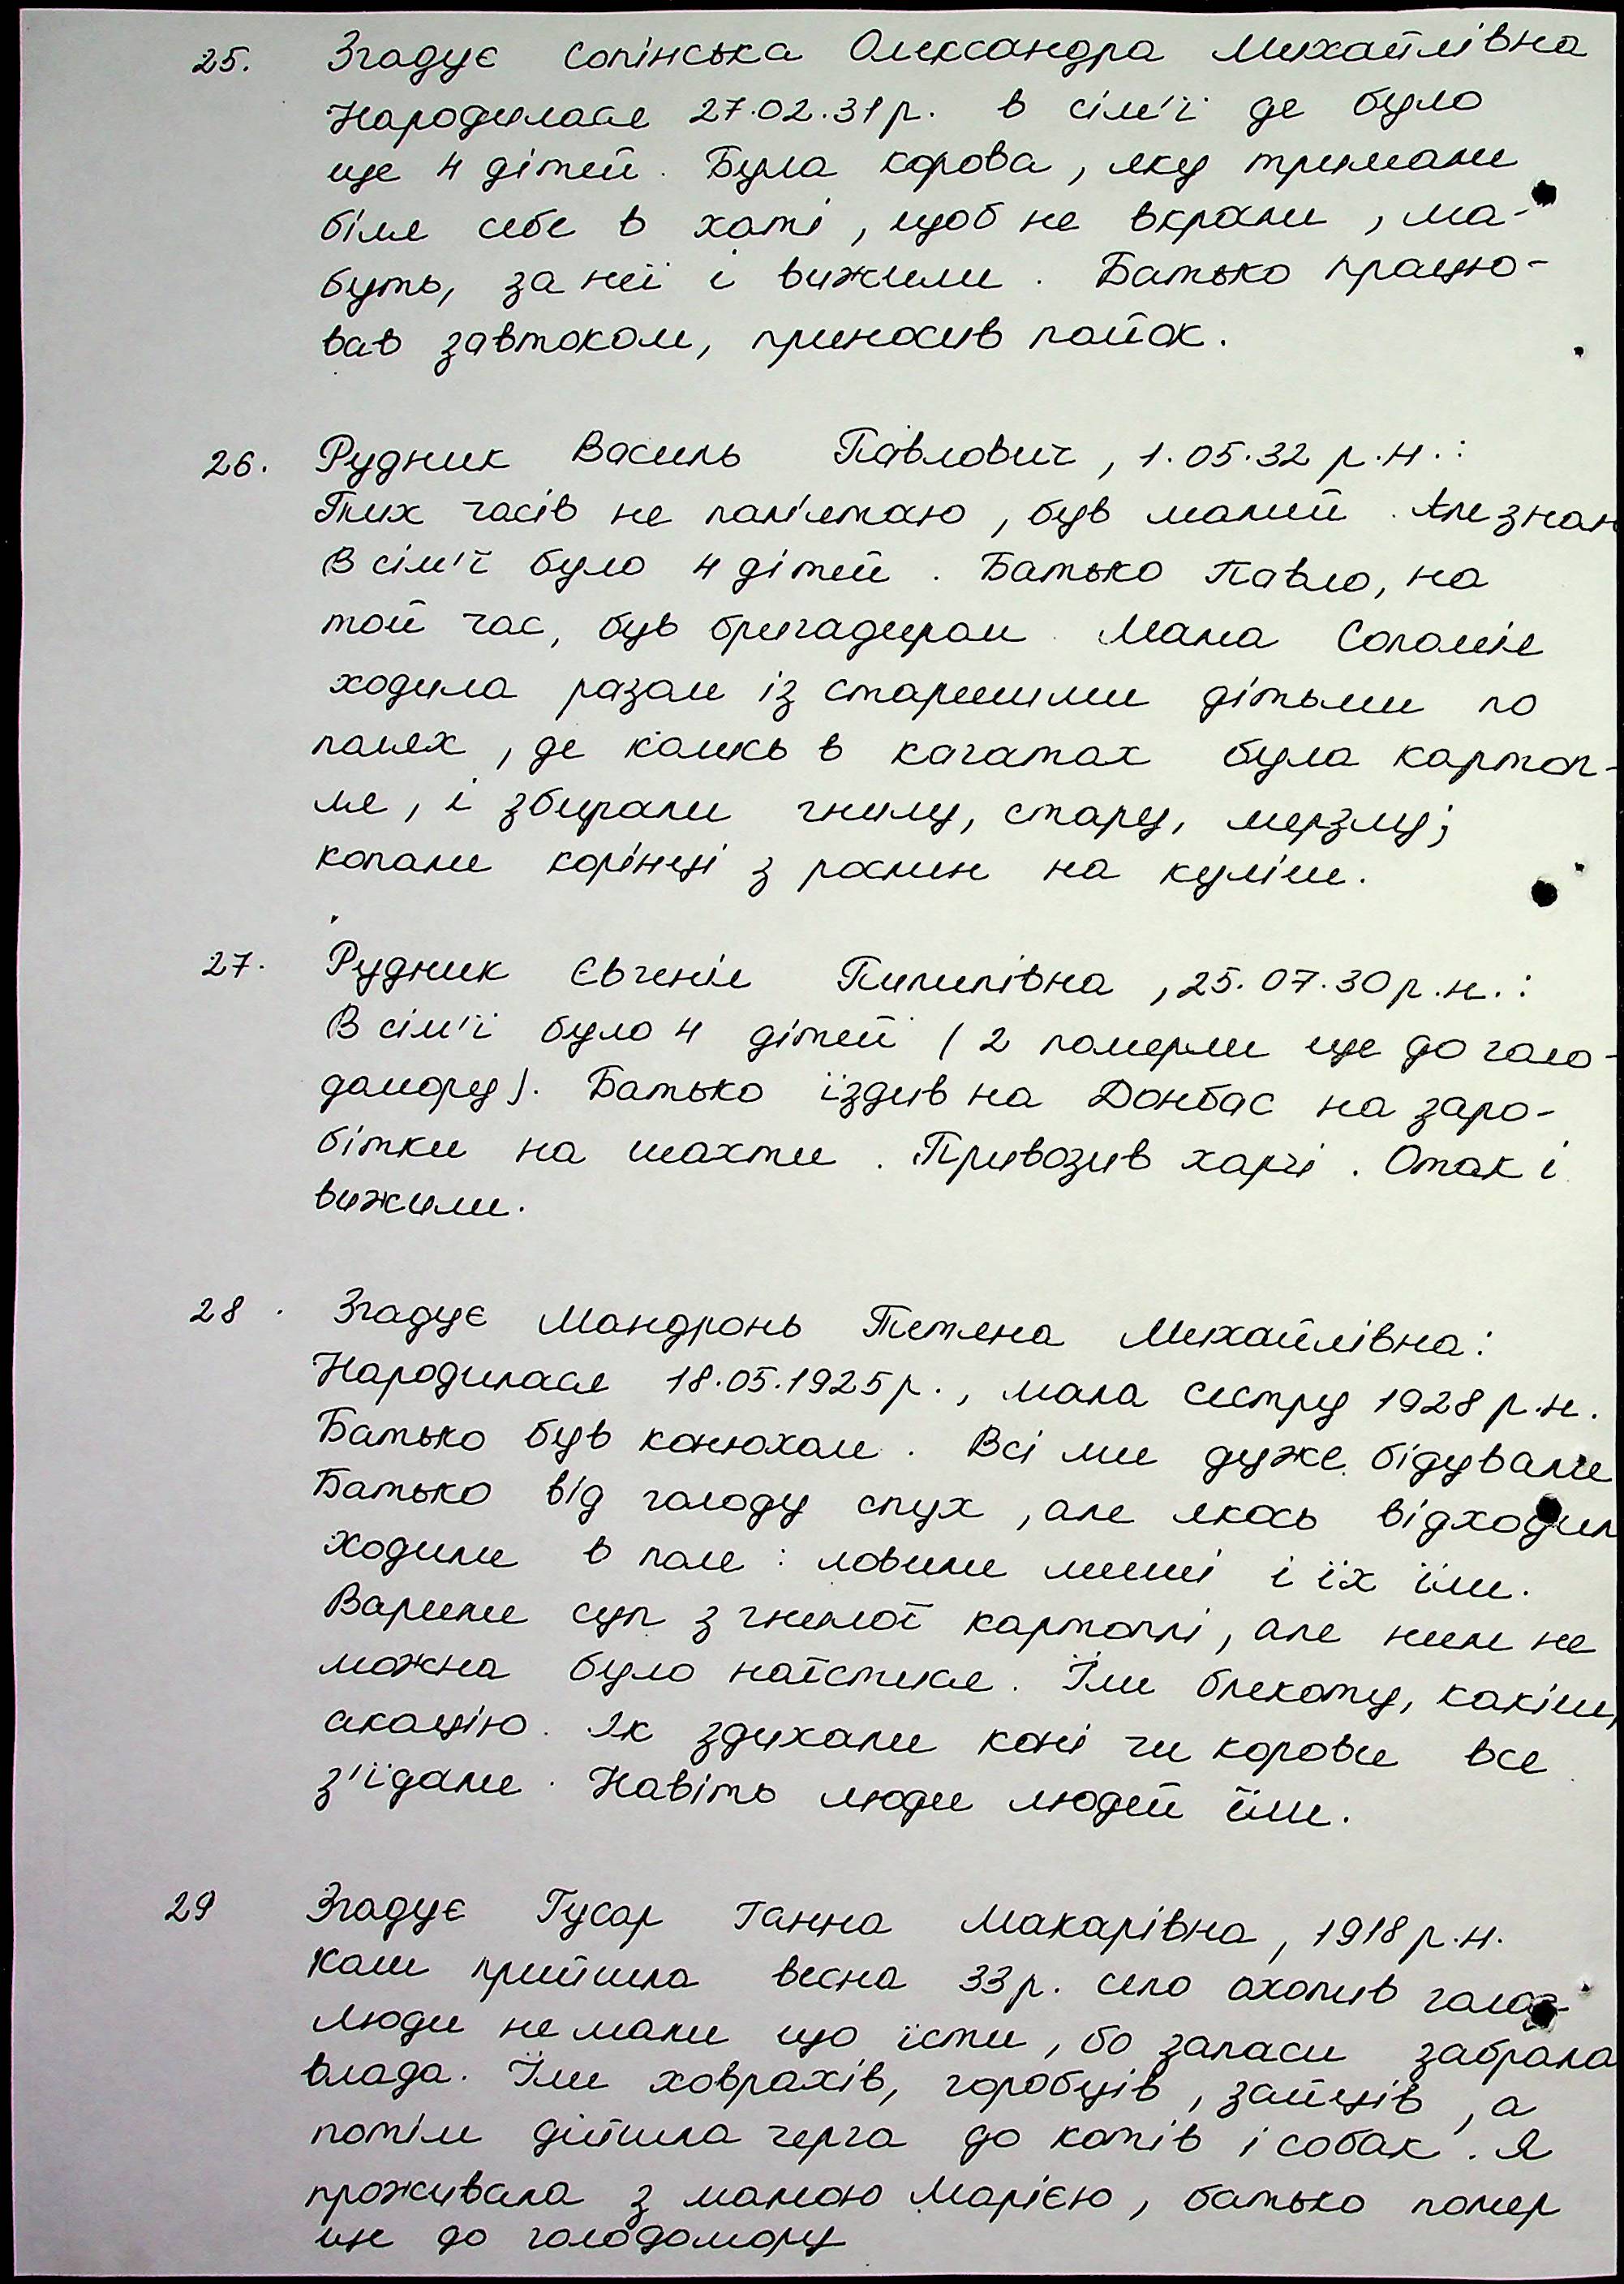 25. Згадує Сопінська Олександра Михайлівна
Народилася 27.02.31р. в сім'ї де було
ще 4 дітей. Була корова, яку тримали
біля себе в хаті, щоб не вкрали, ма-
буть, за неї і вижили. Батько працю-
вав завтоком, приносив пайок.
26. Рудник Василь Павлович, 1.05.32 р.н.:
Тих часів не пам'ятаю, був малий. Але знаю
В сім'ї було 4 дітей. Батько Павло, на
той час, був бригадиром. Мама Соломія
ходила разом із старшими дітьми по
полях, де колись в кагатах була картоп-
ля, і збирали гнилу, стару, мерзлу;
копали корінці з рослин на куліш.
27. Рудник Євгенія Пилипівна, 25.07.30р.н.:
В сім'ї було 4 дітей (2 померли ще до голо-
домору). Батько їздив на Донбас на заро-
бітки на шахти. Привозив харчі. Отак і
вижили.
28. Згадує Мандронь Тетяна Михайлівна:
Народилася 18.05.1925р., мала сестру 1928 р.н.
Батько був конюхом. Всі ми дуже бідували
Батько від голоду спух, але якось відходили
ходили в поле: ловили миші і їх їли.
Варили суп з гнилої картоплі, але ним не
можна було наїстися. Їли блекоту, какіш,
акацію. Як здихали коні чи корови все
з'їдали. Навіть люди людей їли.
29 Згадує Гусар Ганна Макарівна, 1918 р.н.
Коли прийшла весна 33р. село охопив голод
Люди не мали що їсти, бо запаси забрала
влада. Їли ховрахів, горобців, зайців, а
потім дійшла черга до котів і собак. Я
проживала з мамою Марією, батько помер
ще до голодомору